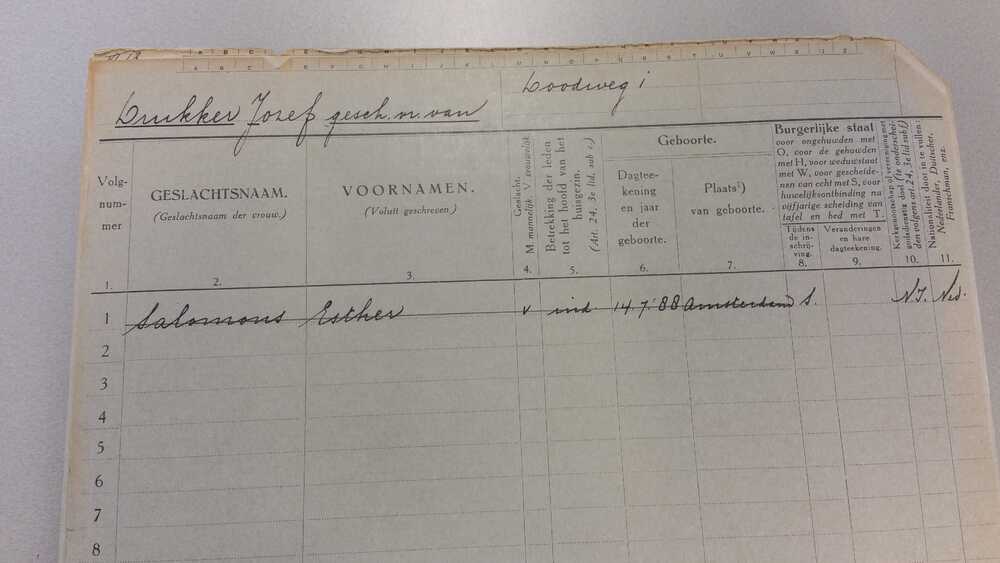 A B C D E F G H I J K L M N O P Q R S T U V W X Y Z
Drukker Jozef gesch. vr. van
Loodweg 1
Volg-
num-
mer
GESLACHTSNAAM.
(Geslachtsnaam der vrouw.)
VOORNAMEN.
(Voluit geschreven)
Geslacht.
M. mannelijk. V. vrouwelijk.
Betrekking der leden
tot het hoofd van het
huisgezin.
(Art. 24, 3e lid, sub c.)
Geboorte.
Dagtee-
kening
en jaar
der
geboorte.
Plaats¹)
van geboorte.
Burgerlijke staat
voor ongehuwden met
O, voor de gehuwden
met H, voor weduwstaat
met W, voor gescheide-
nen van echt met S, voor
huwelijksontbinding na
vijfjarige scheiding van
tafel en bed met T.
Tijdens
de in-
schrij-
ving.
Veranderingen
en hare
dagteekening.
Kerkgenootschap of vereeniging met
godsdienstig doel (te onderschei-
den volgens art. 24, 3e lid sub f)
Nationaliteit door in te vullen:
Nederlander, Duitscher,
Franschman, enz.
1. 2. 3. 4. 5. 6. 7. 8. 9. 10. 11.
1 Salomons Esther v ind. 14.7.'88 Amsterdam S. N.I. Ned.
2
3
4
5
6
7
8